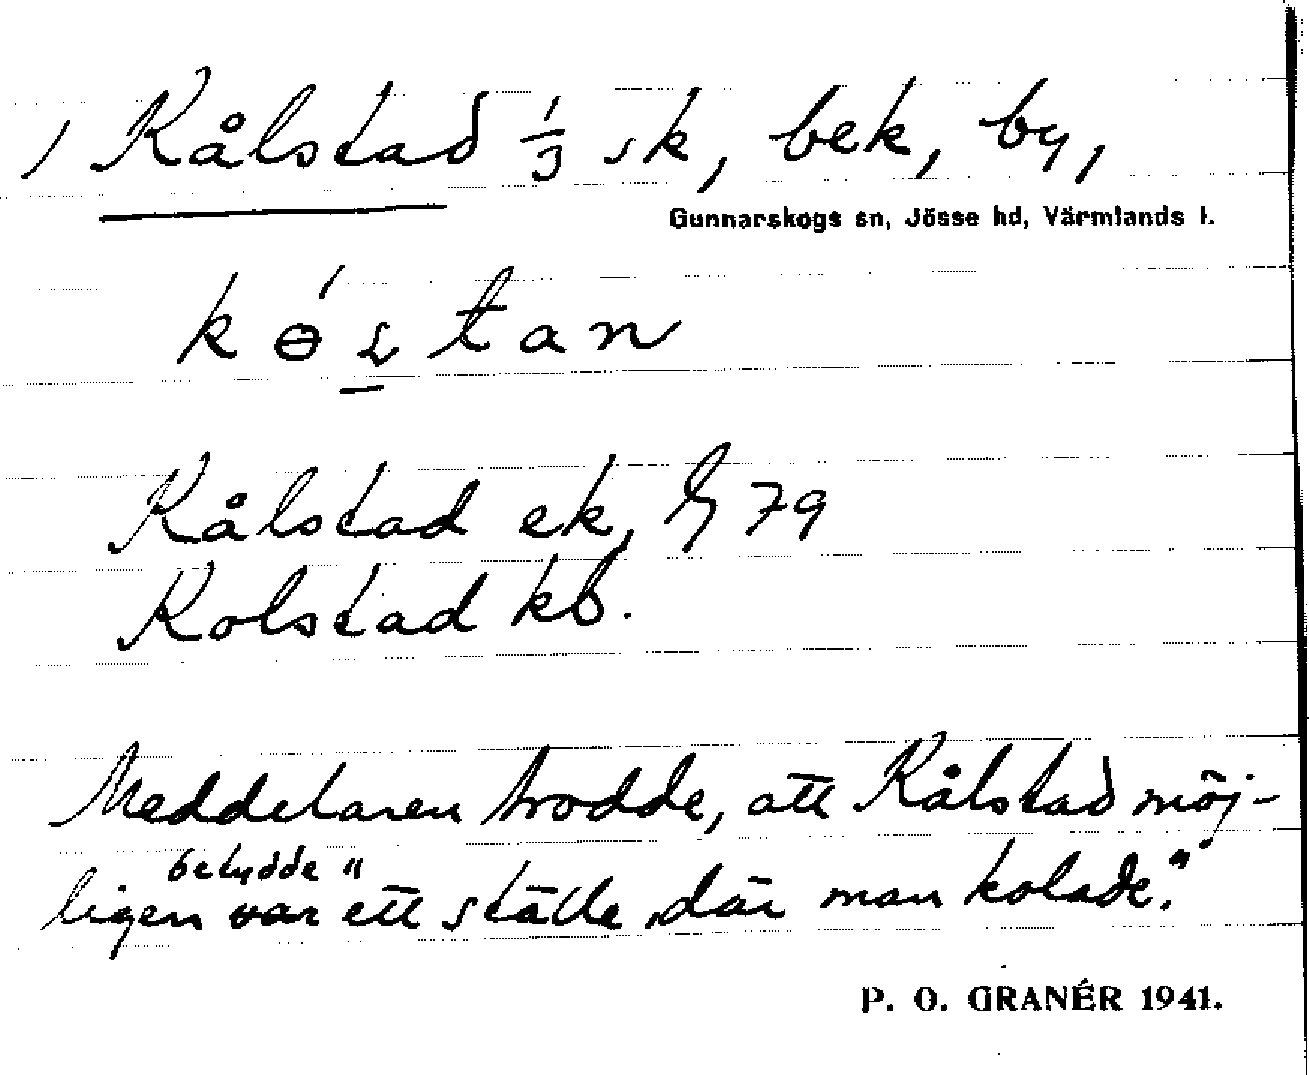 1 Kålstad 1/3 sk, bek, by,
Gunnarskogs sn, Jösse hd, Värmlands l.
Kålstad ek, 79
Kolstad kb.
Meddelaren trodde, att Kålstad möj-
betydde "
ligen var ett ställe, där man kolade."
P. O. GRANÉR 1941.